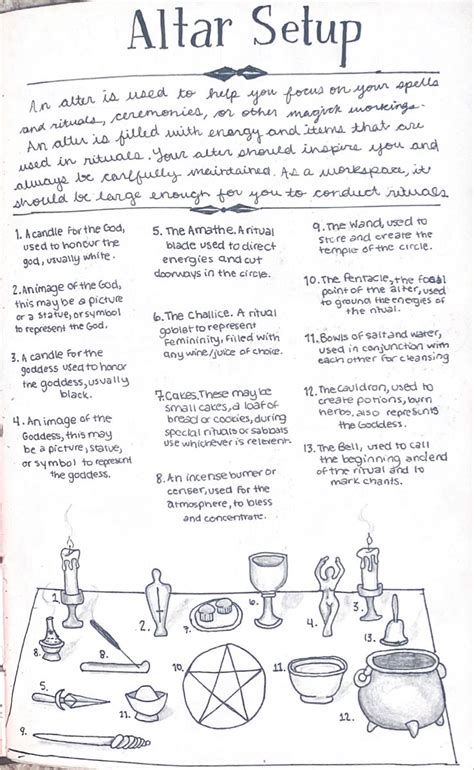 Altar Setup
An alter is used to help you focus on your spells
and rituals, ceremonies, or other magick workings.
An alter is filled with energy and items that are
used in rituals. Your alter should inspire you and
always be carefully maintained. As a workspace, it
should be large enough for you to conduct rituals
1. A candle for the God,
used to honour the
god, usually white.
2. An image of the God,
this may be a picture
or a statue, or symbol
to represent the God.
3. A candle for the
goddess used to honor
the goddess, usually
black.
4. An image of the
Goddess, this may
be a picture, statue,
or symbol to represent
the goddess.
5. The Amathe. A ritual
blade used to direct
energies and cut
doorways in the circle.
6. The Challice. A ritual
goblet to represent
femininity, filled with
any wine/juice of choice.
7. Cakes. These may be
small cakes, a loaf of
bread or cookies, during
special rituals or sabbats
use whichever is relevent.
8. An incense burner or
censer, used for the
atmosphere, to bless
and concentrate.
9. The Wand, used to
store and create the
temple of the circle.
10. The Pentacle, the focal
point of the alter, used
to ground the energies of
the ritual.
11. Bowls of salt and water,
used in conjunction with
each other for cleansing
12. The Cauldron, used to
create potions, burn
herbs, also represents
the Goddess.
13. The Bell, used to call
the beginning and end
of the ritual and to
mark chants.
1.
2.
7.
6.
4.
3.
13.
8.
8.
10.
11.
5.
11.
12.
9.